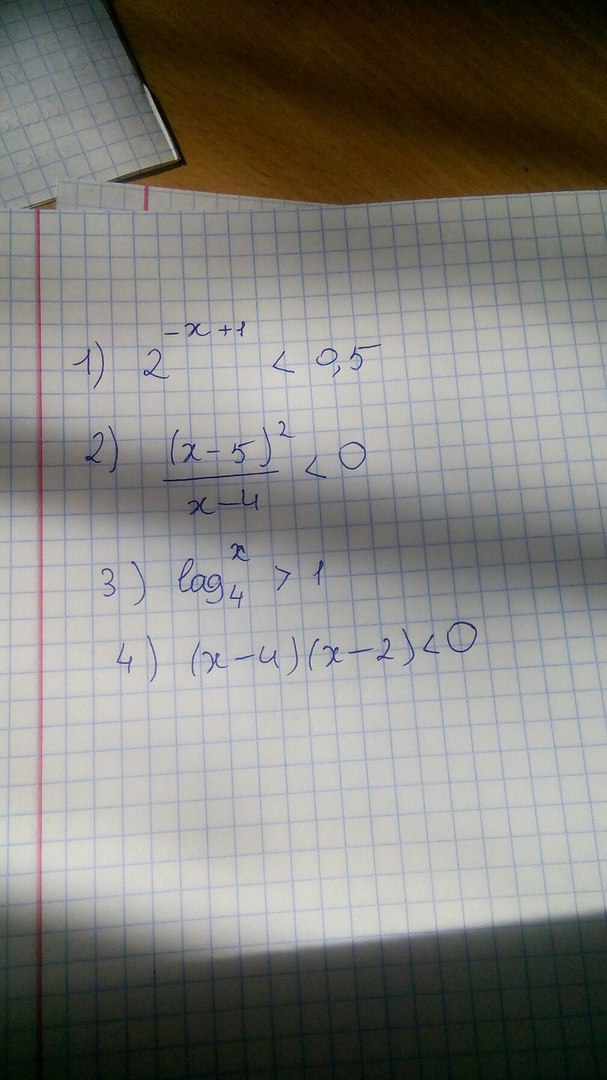 1) 2^{-x+1} < 0,5
2) \frac{(x-5)^2}{x-4} < 0
3) log_4^x > 1
4) (x-4)(x-2)<0